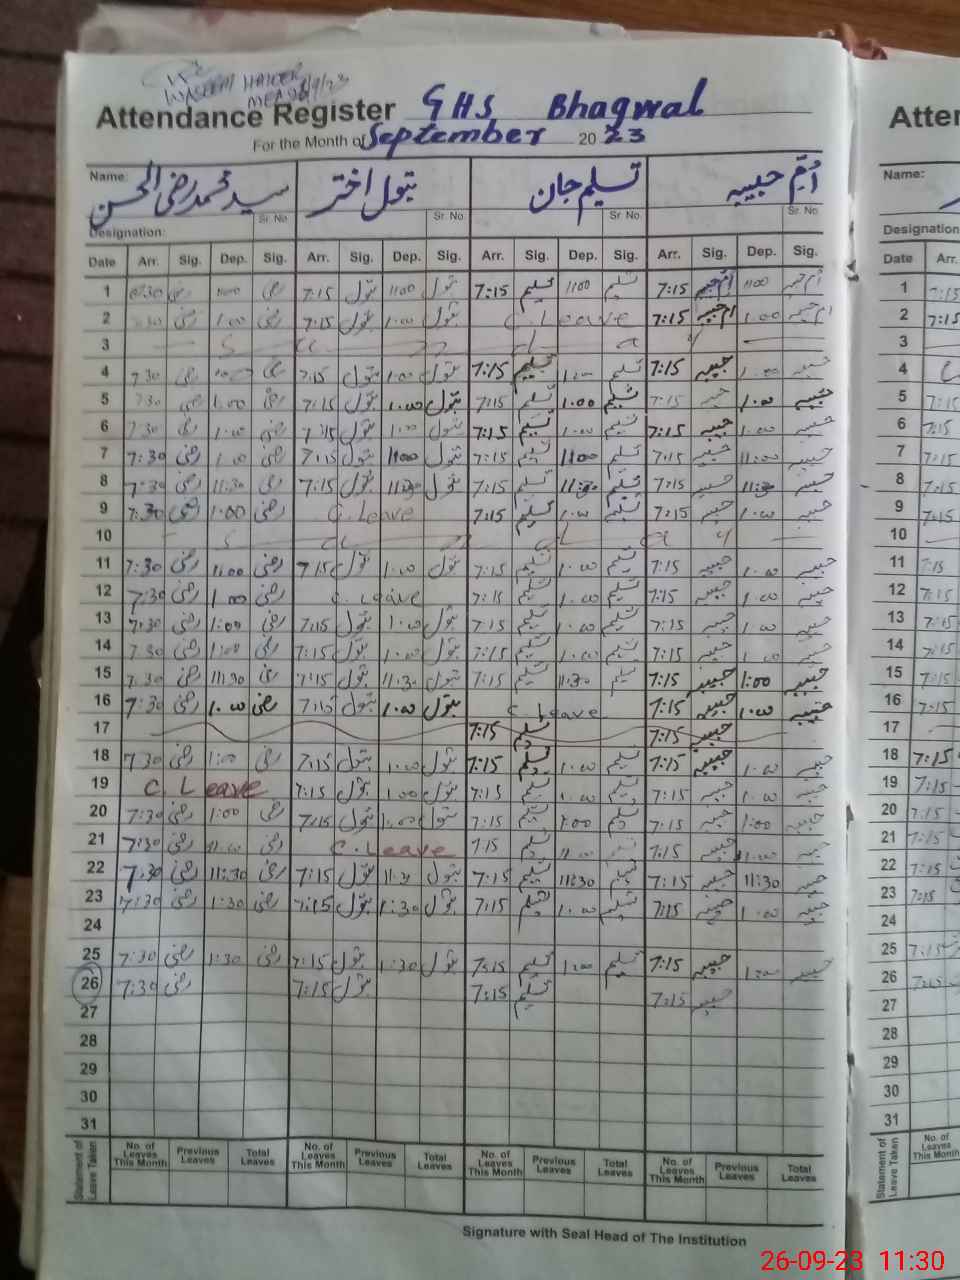 WASEEM HAIDER
MEA
Attendance Register GHS Bhagwal
For the Month of September 2023
Name: سید محمد رضی الحسن بتول اختر تسلیم جان اُمِّ حبیبہ
Sr. No Sr. No. Sr. No. Sr. No.
Designation:
Date Arr. Sig. Dep. Sig. Arr. Sig. Dep. Sig. Arr. Sig. Dep. Sig. Arr. Sig. Dep. Sig.
1 رضی 1100 رضی 7:15 بتول 1100 بتول 7:15 تسلیم 1100 تسلیم 7:15 ام حبیبہ 1100 ام حبیبہ
2 رضی 1.00 رضی 7:15 بتول 1.00 بتول C. Leave 7:15 ام حبیبہ 1.00 ام حبیبہ
3 S u n d a y
4 7:30 رضی رضی 7:15 بتول 1:00 بتول 7:15 تسلیم 1:00 تسلیم 7:15 حبیبہ 1.00 حبیبہ
5 730 رضی 1:00 رضی 7:15 بتول 1.00 بتول 7:15 تسلیم 1:00 تسلیم 7:15 حبیبہ 1.00 حبیبہ
6 7:30 رضی 1.00 رضی 7:15 بتول 1:00 بتول 7:15 تسلیم 1.00 تسلیم 7:15 حبیبہ 1.00 حبیبہ
7 7:30 رضی رضی 7:15 بتول 1100 بتول 7:15 تسلیم 1100 تسلیم 7:15 حبیبہ 11:00 حبیبہ
8 7:30 رضی 11:30 رضی 7:15 بتول 11:30 بتول 7:15 تسلیم 11:30 تسلیم 7:15 حبیبہ 11:30 حبیبہ
9 7:30 رضی 1:00 رضی C. Leave 7:15 تسلیم 1.00 تسلیم 7:15 حبیبہ 1.00 حبیبہ
10 S u n d a y
11 7:30 رضی 1:00 رضی 7:15 بتول 1.00 بتول 7:15 تسلیم 1.00 تسلیم 7:15 حبیبہ 1.00 حبیبہ
12 7:30 رضی 1.00 رضی C. Leave 7:15 تسلیم 1.00 تسلیم 7:15 حبیبہ 1.00 حبیبہ
13 7:30 رضی 1:00 رضی 7:15 بتول 1.00 بتول 7:15 تسلیم 1.00 تسلیم 7:15 حبیبہ 1.00 حبیبہ
14 7:30 رضی 1:00 رضی 7:15 بتول 1.00 بتول 7:15 تسلیم 1.00 تسلیم 7:15 حبیبہ 1.00 حبیبہ
15 7:30 رضی 11:30 رضی 7:15 بتول 11:30 بتول 7:15 تسلیم 11:30 تسلیم 7:15 حبیبہ 1:00 حبیبہ
16 7:30 رضی 1.00 رضی 7:15 بتول 1.00 بتول C. Leave 7:15 حبیبہ 1.00 حبیبہ
17 7:15 تسلیم 7:15 حبیبہ
18 7:30 رضی 1:00 رضی 7:15 بتول 1.00 بتول 7:15 تسلیم 1.00 تسلیم 7:15 حبیبہ 1.00 حبیبہ
19 C. Leave 7:15 بتول 1.00 بتول 7:15 تسلیم 1.00 تسلیم 7:15 حبیبہ 1.00 حبیبہ
20 7:30 رضی 1:00 رضی 7:15 بتول 1:00 بتول 7:15 تسلیم 1:00 تسلیم 7:15 حبیبہ 1:00 حبیبہ
21 7:30 رضی 11.00 رضی C. Leave 7:15 تسلیم 11.00 7:15 حبیبہ 11.00 حبیبہ
22 7:30 رضی 11:30 رضی 7:15 بتول 11:30 بتول 7:15 تسلیم 11:30 تسلیم 7:15 حبیبہ 11:30 حبیبہ
23 7:30 رضی 1:30 رضی 7:15 بتول 1:30 بتول 7:15 تسلیم 1.00 تسلیم 7:15 حبیبہ 1.00 حبیبہ
24
25 7:30 رضی 1:30 رضی 7:15 بتول 1:30 بتول 7:15 تسلیم 1:00 تسلیم 7:15 حبیبہ 1:00 حبیبہ
26 7:30 رضی 7:15 بتول 7:15 تسلیم 7:15 حبیبہ
27
28
29
30
31
Statement of Leave Taken No. of Leaves This Month Previous Leaves Total Leaves No. of Leaves This Month Previous Leaves Total Leaves No. of Leaves This Month Previous Leaves Total Leaves No. of Leaves This Month Previous Leaves Total Leaves
Signature with Seal Head of The Institution
Atter
Name:
Designation
Date Arr.
1 7:15
2 7:15
3
4
5 7:15
6 7:15
7 7:15
8 7:15
9 7:15
10
11 7:15
12 7:15
13 7:15
14 7:15
15 7:15
16 7:15
17
18 7:15
19 7:15
20 7:15
21 7:15
22 7:15
23 7:15
24
25 7:15
26 7:15
27
28
29
30
31
Statement of Leave Taken No. of Leaves This Month
26-09-23 11:30